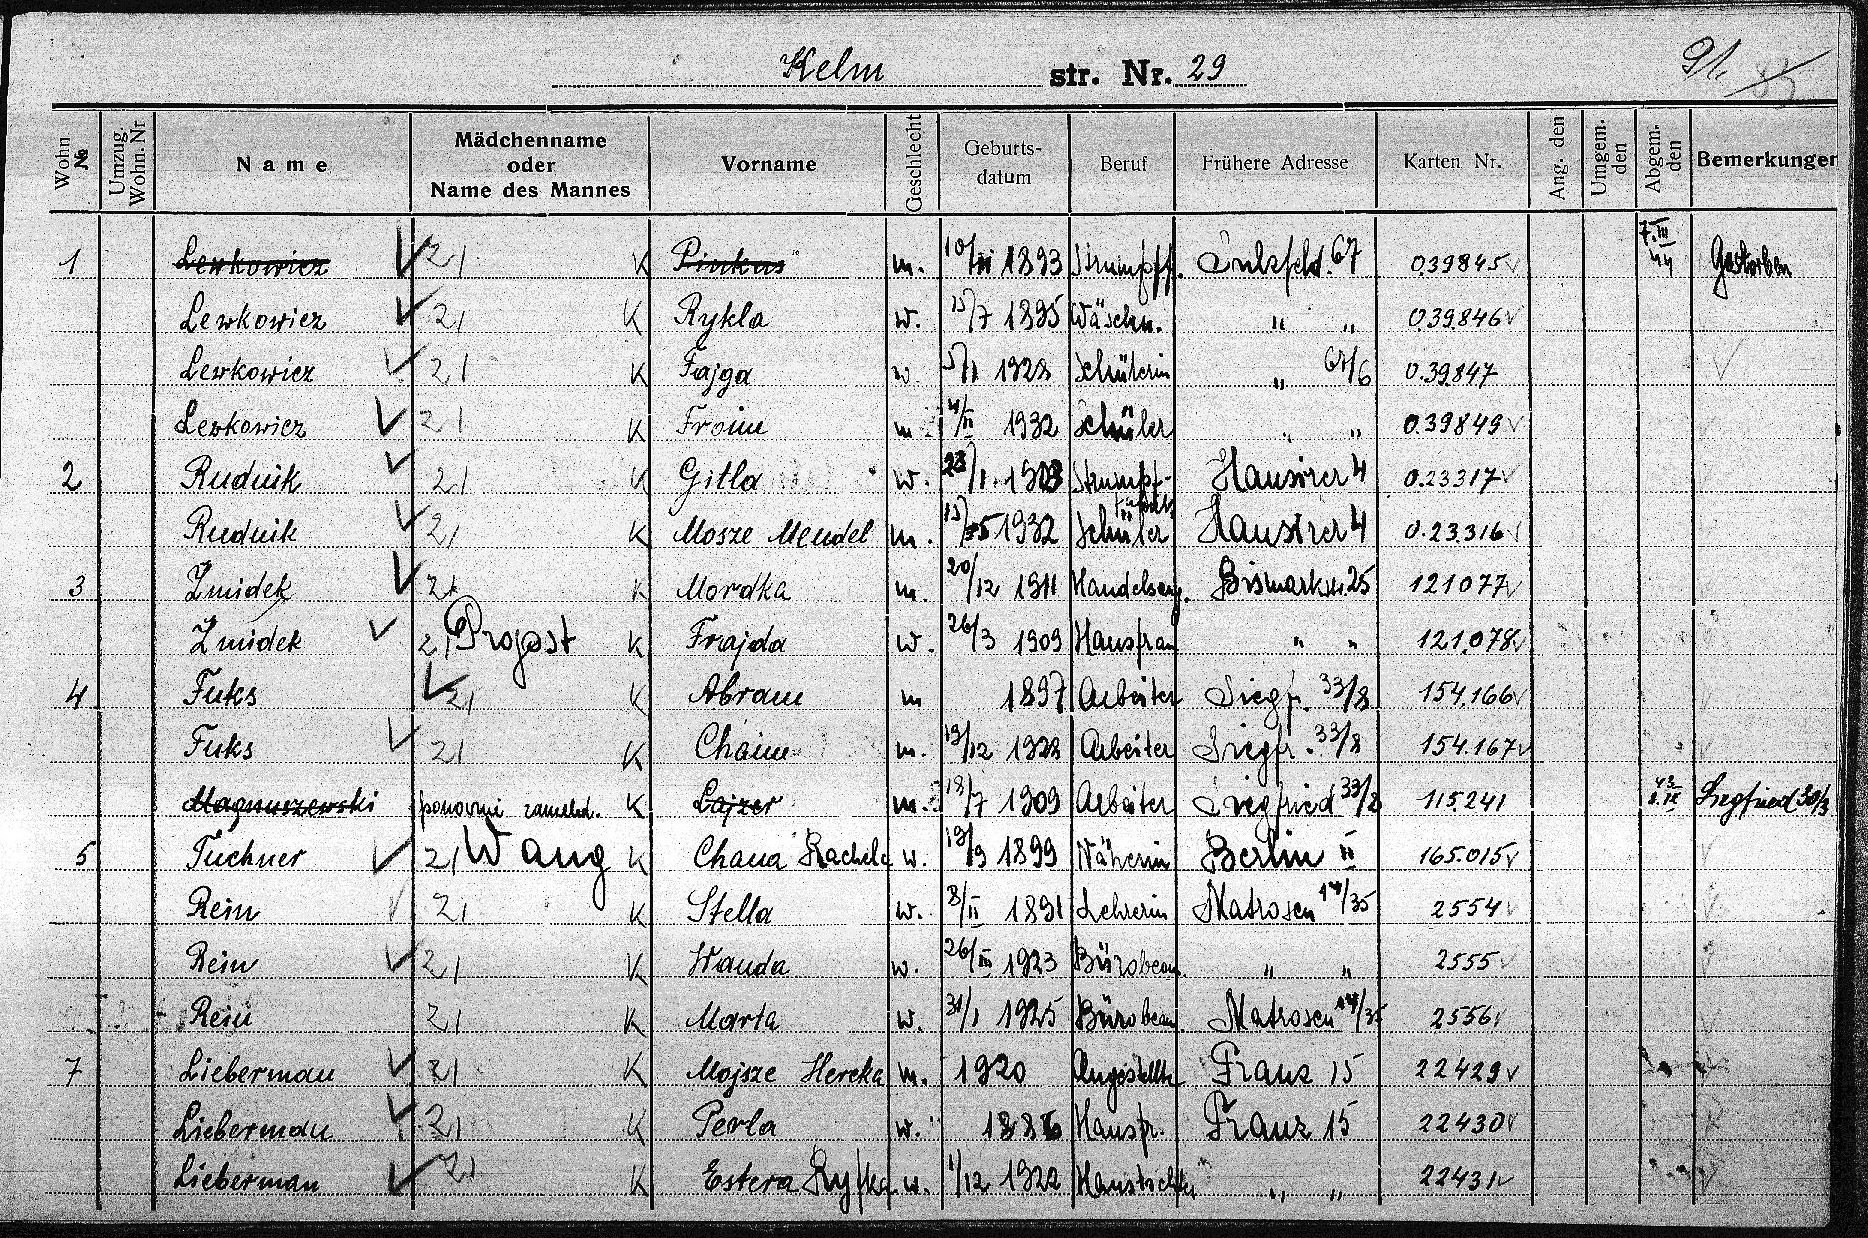 Kelm str. Nr. 29 91. 83
Wohn № Umzug. Wohn. Nr Name Mädchenname oder Name des Mannes Vorname Geschlecht Geburtsdatum Beruf Frühere Adresse Karten Nr. Ang. den Umgem. den Abgem. den Bemerkungen
1 Lewkowicz 21 K Pinkus m. 10/VI 1893 Strumpff. Sulzfeld. 67 039845 7.III 44 Gestorben
Lewkowicz 21 K Rykla w. 15/7 1895 Wäschn. " " 039.846
Lewkowicz 21 K Fajga w 5/1 1928 Schülerin " 67/6 0.39.847
Lewkowicz 21 K Froim m 4/II 1932 Schüler " " 0.39849
2 Rudnik 21 K Gitla w. 28/1. 1903 Strumpf- Hausirer 4 0.23317
Rudnik 21 K Mosze Mendel m. 15/5 1932 Schüler Hausirer 4 0.23.316
3 Zmidek 21 K Mordka m. 20/12 1911 Handelsang. Bismarkstr. 25 121077
Zmidek 21 Progost K Frajda w. 26/3 1909 Hausfrau " " 121.078
4 Fuks 21 K Abram m 1897 Arbeiter Siegfr. 33/8 154.166
Fuks 21 K Chaim m. 19/12 1928 Arbeiter Siegfr. 33/8 154.167
Magnuszewski ponowni zameld. K Lajzer m. 18/7 1909 Arbeiter Siegfried 33/8 115.241 Siegfried 30/3
5 Tuchner 21 Wang K Chana Rachela w. 19/9 1899 Näherin Berlin II 165.015
Rein 21 K Stella w. 8/II 1891 Lehrerin Matrosen 14/35 2554
Rein 21 K Wanda w. 26/III 1923 Bürobeam. " " 2555
Rein 21 K Marta w. 31/1 1925 Bürobeam Matrosen 14/35 2556
7 Lieberman 21 K Mojsze Hercka m. 1920 Angestellte Franz 15 22429
Lieberman 21 K Perla w. 1886 Hausfr. Franz 15 22430
Lieberman 21 K Estera Ryfka w. 1/12 1922 Haustochter " " 22431